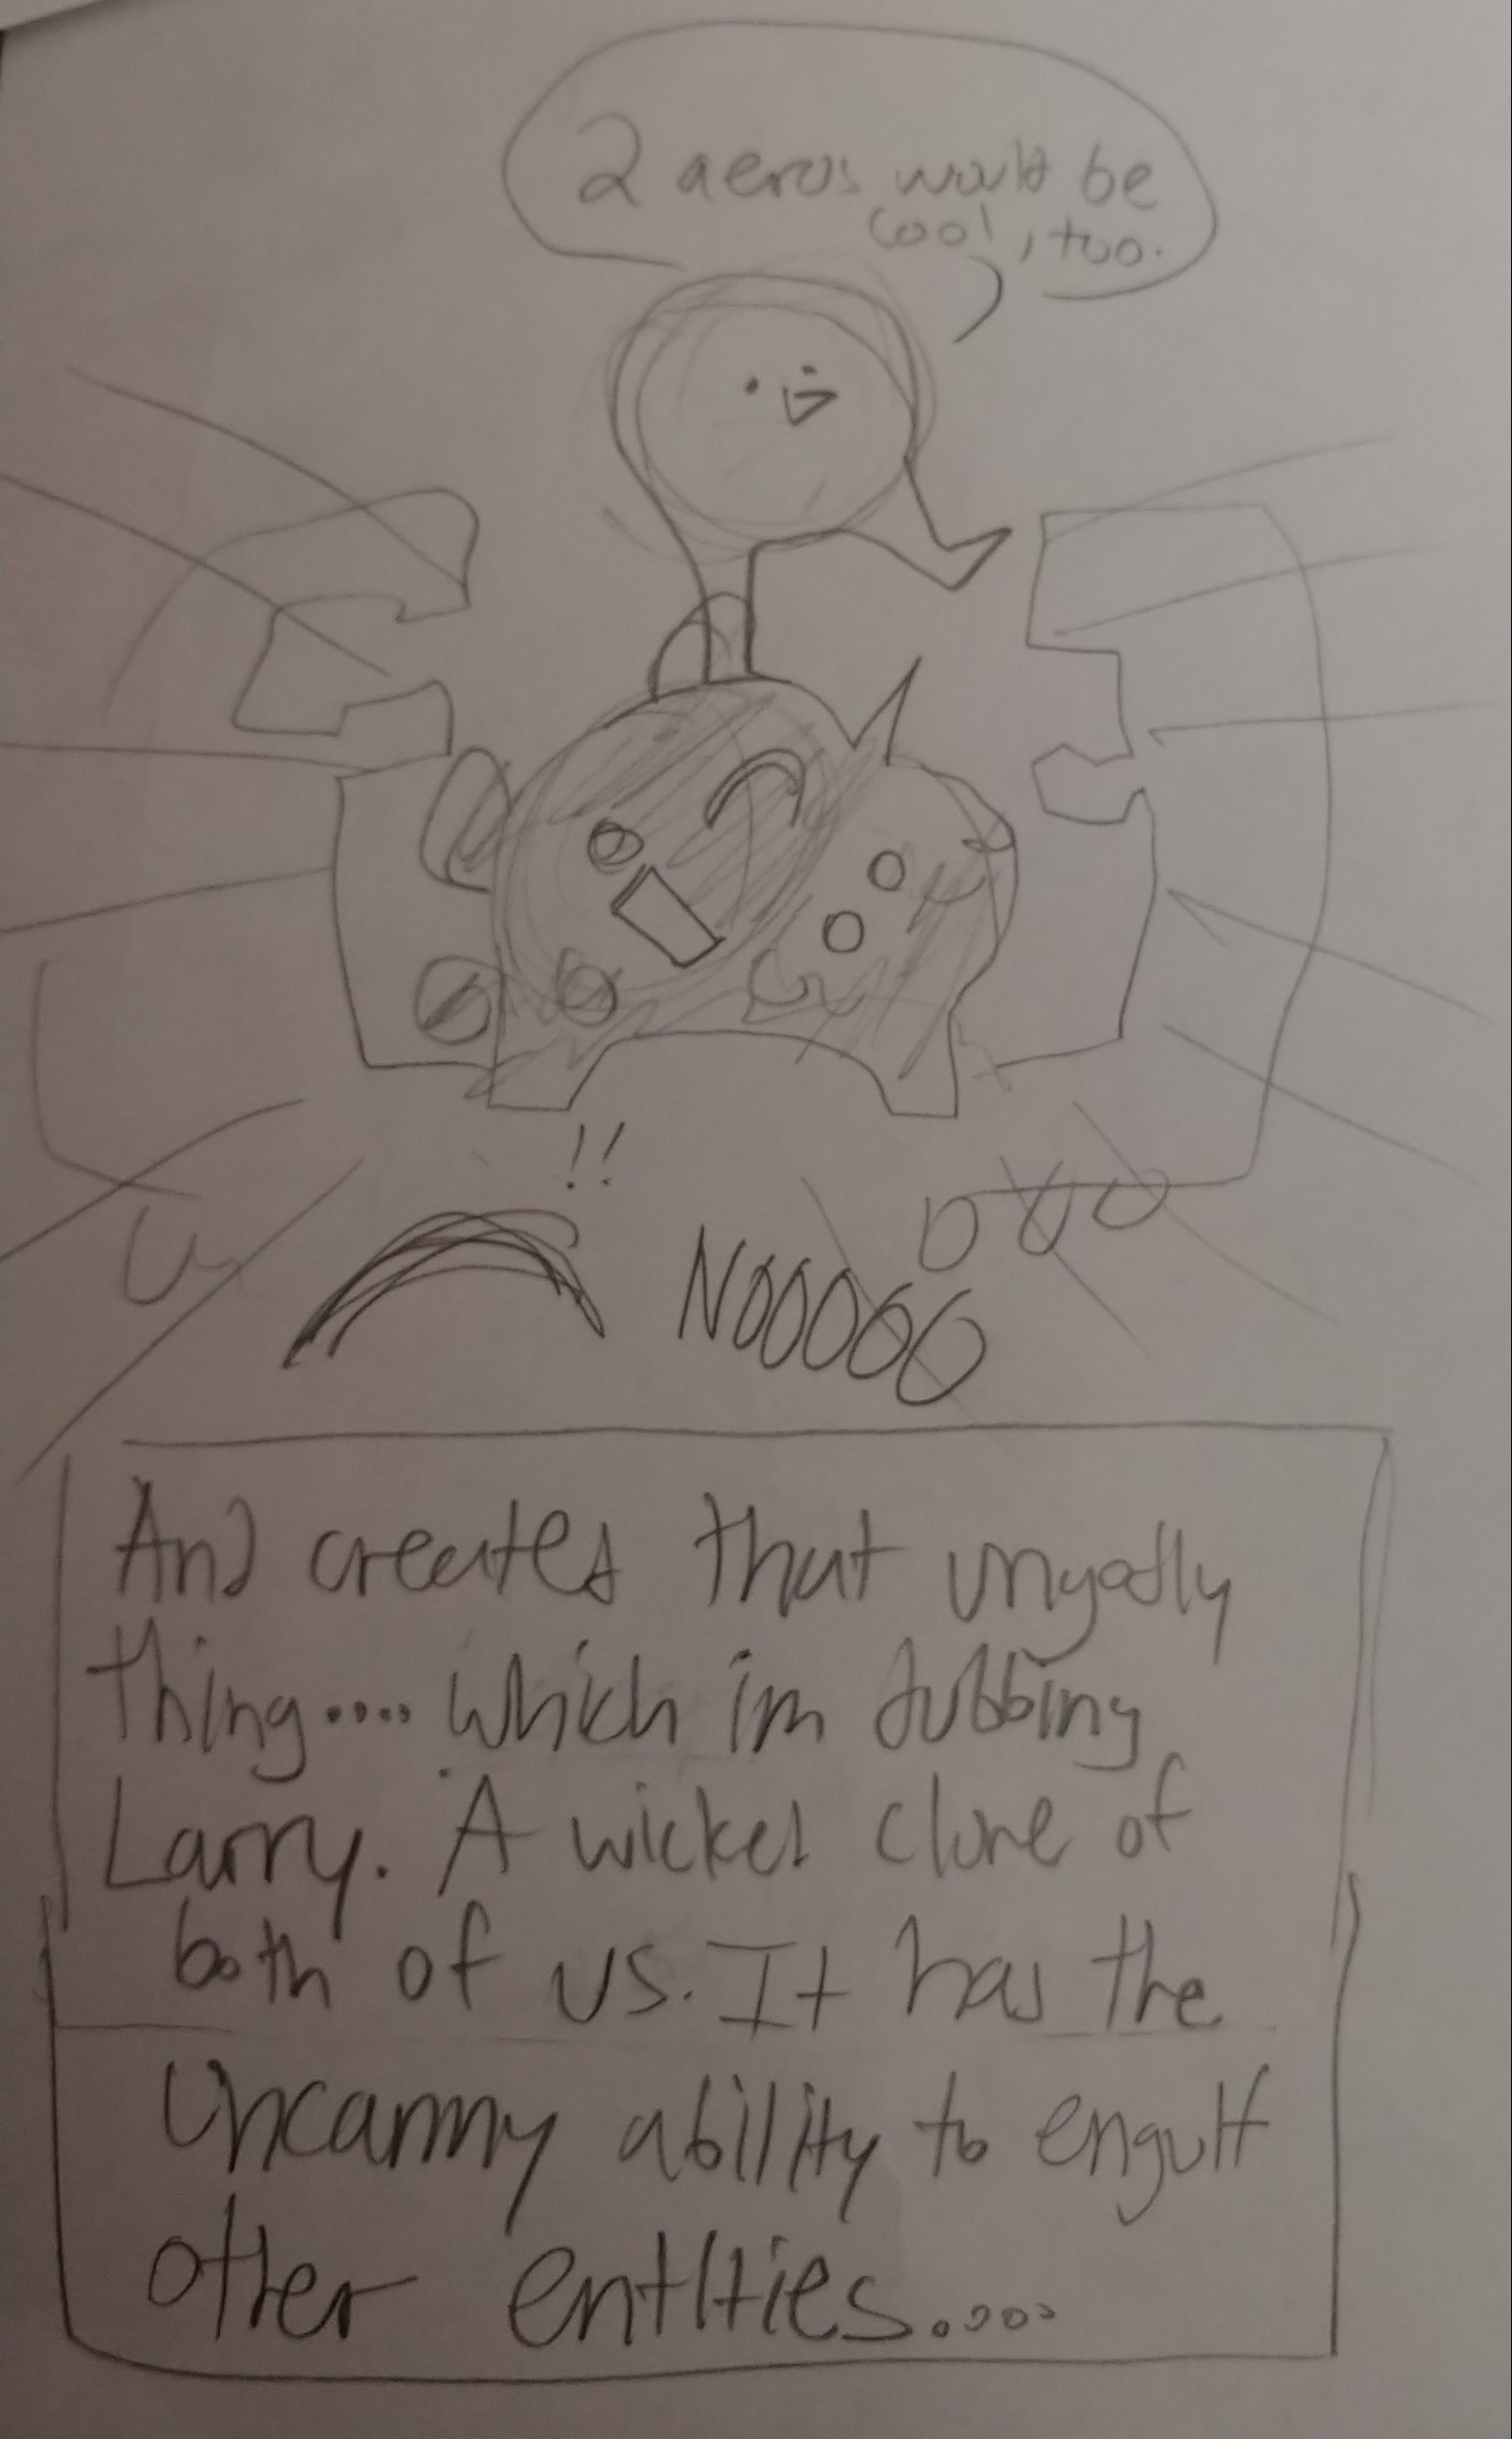 2 aeros would be
cool, too.
!!
NOOOOO
And creates that ungodly
thing.... which im dubbing
Larry. A wicked clone of
both of us. It has the
uncanny ability to engulf
other entities.....